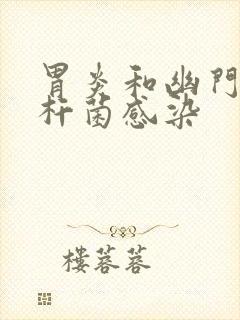 胃炎和幽門
杆菌感染
樓蓉蓉